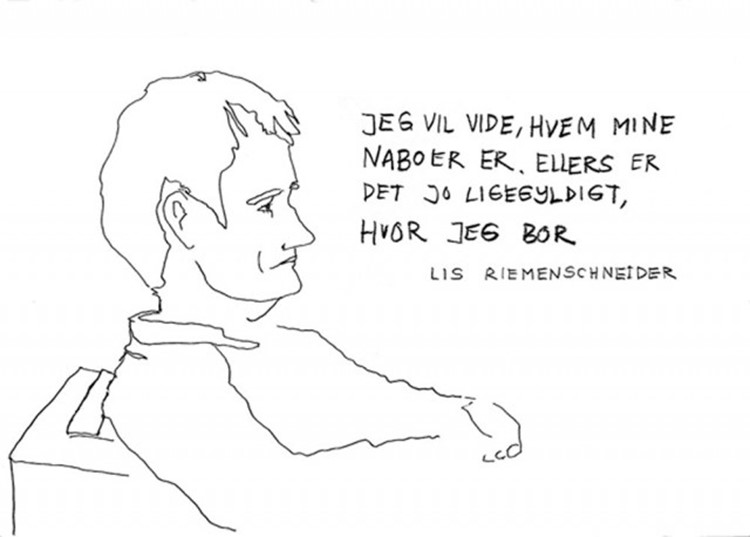 JEG VIL VIDE, HVEM MINE
NABOER ER. ELLERS ER
DET JO LIGEGYLDIGT,
HVOR JEG BOR
LIS RIEMENSCHNEIDER